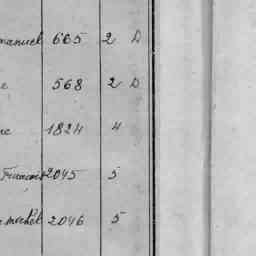 manuel 665 2 D
e 568 2 D
ne 1824 4
François 2045 5
michel 2046 5